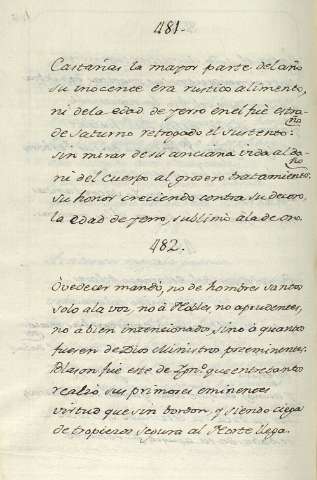 481.
Castañas la mayor parte del año
su inocente era rustico alimento,
ni de la edad de yerro en el fuè estraño
de Saturno retrogado el sustento:
sin mirar de su anciana vida al daño
ni del cuerpo al grosero tratamiento,
su honor creciendo contra su decoro,
la edad de yerro, sublimò a la de oro.
482.
Ovedecer mandò, no de hombres santos
solo a la voz, no à Nobles, no a prudentes,
no à bien intencionados, sino à quantos
fueren de Dios Ministros preeminentes.
Blason fuè este de Ign.º que entre santos
realzò sus primores eminentes
virtud que sin bordon, y siendo ciega
de tropiezos segura al Norte llega.